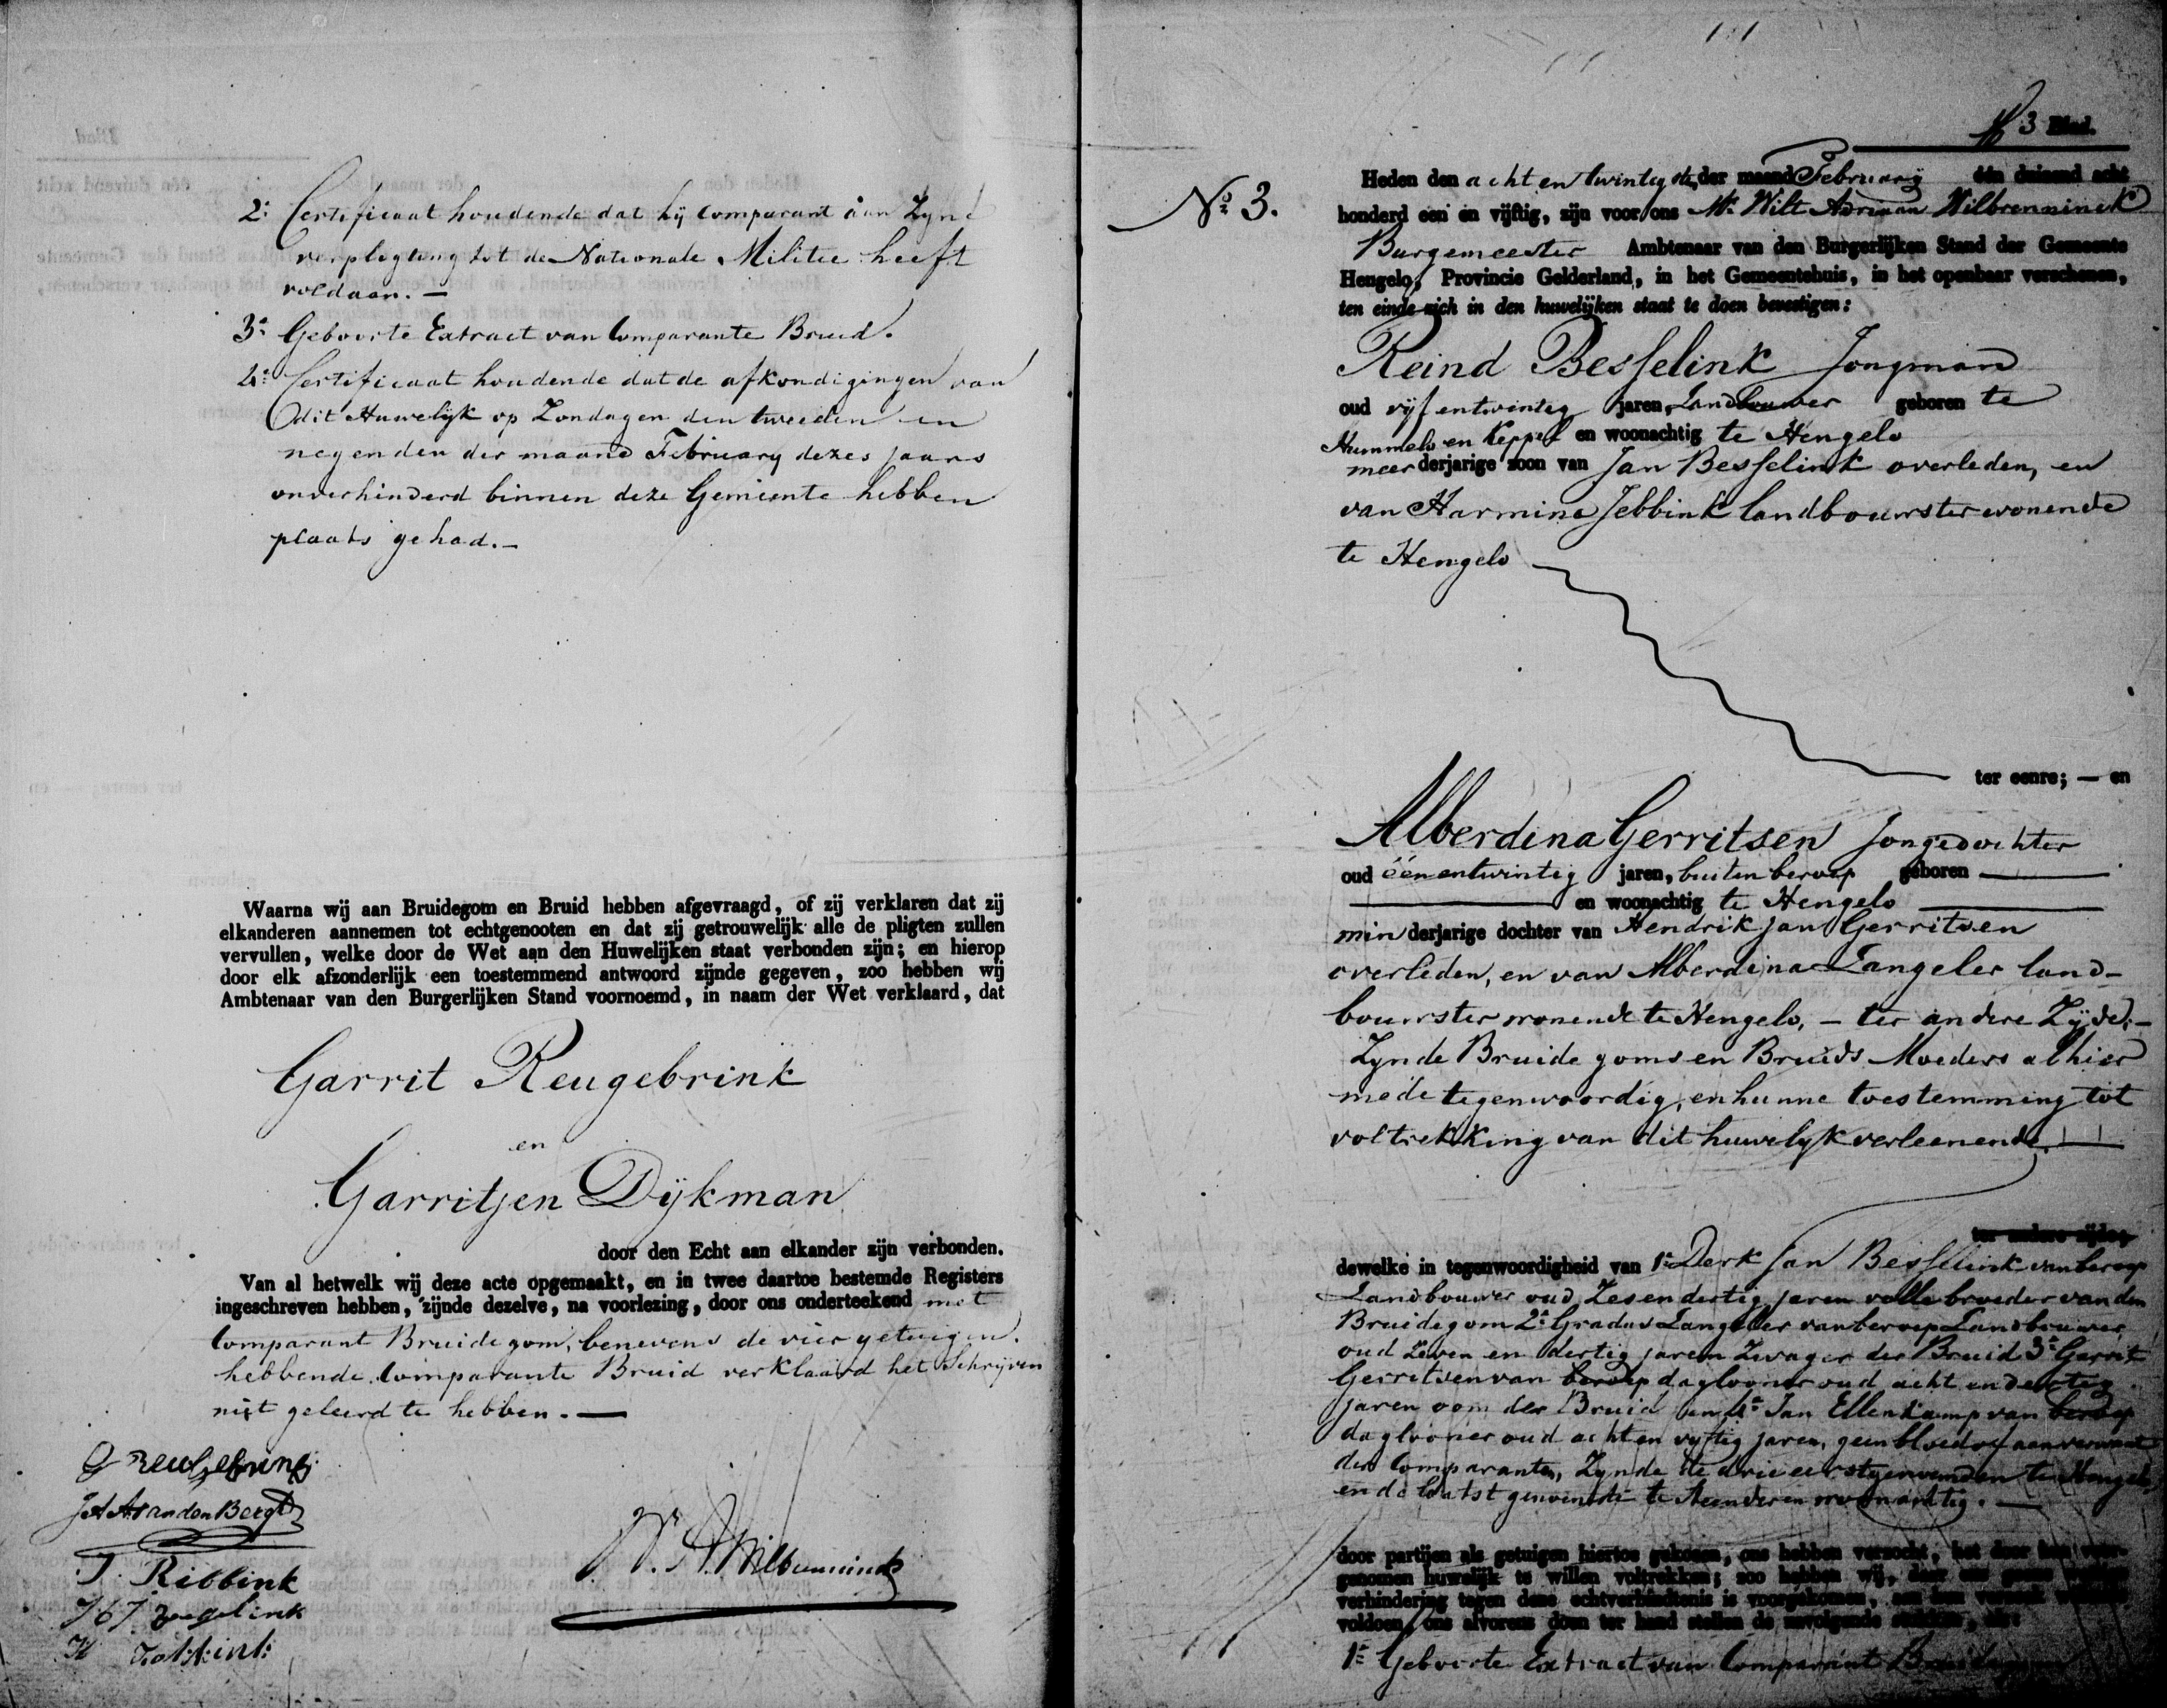 2e Certificaat houdende dat hij Comparant aan Zyne
verpligting tot de Nationale Militie heeft
voldaan. —
3e Geboorte Extract van Comparante Bruid.
4e Certificaat houdende dat de afkondigingen van
dit Huwelijk op Zondagen den tweeden en
negenden der maand February dezes jaars
onverhinderd binnen deze Gemeente hebben
plaats gehad. —
Waarna wij aan Bruidegom en Bruid hebben afgevraagd, of zij verklaren dat zij
elkanderen aannemen tot echtgenooten en dat zij getrouwelijk alle de pligten zullen
vervullen, welke door de Wet aan den Huwelijken staat verbonden zijn; en hierop
door elk afzonderlijk een toestemmend antwoord zijnde gegeven, zoo hebben wij
Ambtenaar van den Burgerlijken Stand voornoemd, in naam der Wet verklaard, dat
Garrit Reugebrink
en
Garritjen Dijkman
door den Echt aan elkander zijn verbonden.
Van al hetwelk wij deze acte opgemaakt, en in twee daartoe bestemde Registers
ingeschreven hebben, zijnde dezelve, na voorlezing, door ons onderteekend met
Comparant Bruidegom, benevens de vier getuigen.
hebbende Comparante Bruid verklaard het Schrijven
niet geleerd te hebben. —
G Reugebrink
van den Bergh
W. A. Wilbrenninck
J. Ribbink
Zegelink
H
3 Blad.
No 3.
Heden den acht en twintigste, der maand February één duizend acht
honderd een en vijftig, zijn voor ons Mr. Wilt Adriaan Wilbrenninck
Burgemeester Ambtenaar van den Burgerlijken Stand der Gemeente
Hengelo, Provincie Gelderland, in het Gemeentehuis, in het openbaar verschenen,
ten einde zich in den huwelijken staat te doen bevestigen:
Reind Besselink Jongman
oud vijf entwintig jaren, Landbouwer geboren te
Hummelo en Keppel en woonachtig te Hengelo
meerderjarige zoon van Jan Besselink overleden, en
van Harmina Jebbink landbouwster wonende
te Hengelo
ter eenre; — en
Alberdina Gerritsen Jongedochter
oud éénentwintig jaren, buiten beroep geboren —
— en woonachtig te Hengelo —
minderjarige dochter van Hendrik Jan Gerritsen
overleden, en van Alberdina Langeler land-
bouwster wonende te Hengelo, — ter andere Zijde, —
Zynde Bruidegoms en Bruids Moeders alhier
mede tegenwoordig, en hunne toestemming tot
voltrekking van dit huwelijk verleenende. —
ter andere zijde;
dewelke in tegenwoordigheid van 1e Derk Jan Besselink van beroep
Landbouwer oud Zesendertig jaren volle broeder van den
Bruidegom 2e Gradus Langeler van beroep Landbouwer
oud Zeven en dertig jaren Zwager der Bruid 3e Garrit
Gerritsen van beroep daglooner oud acht en dertig
jaren oom der Bruid en 4e Jan Ellenkamp van beroep
daglooner oud acht en vyftig jaren, geen bloed of aanverwant
der Comparanten, Zynde de drie eerstgenoemden te Hengelo
en de laatst genoemde te Steenderen woonachtig. —
door partijen als getuigen hiertoe gekozen, ons hebben verzocht, het door hen voor-
genomen huwelijk te willen voltrekken; zoo hebben wij, daar ons geene
verhindering tegen deze echtverbindtenis is voorgekomen, aan hun verzoek
voldoen, ons alvorens doen ter hand stellen de navolgende stukken, als:
1e Geboorte Extract van Comparant Bruidegom